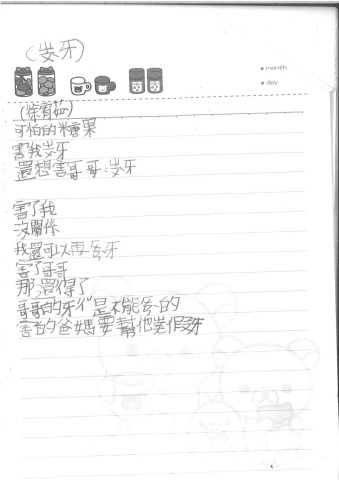 (蛀牙)
month
day
(徐宥茹)
可怕的糖果
害我蛀牙
還想害哥哥蛀牙
害了我
沒關係
我還可以再長牙
害了哥哥
那還得了
哥哥的牙仔是不能長的
害的爸媽要幫他裝假牙